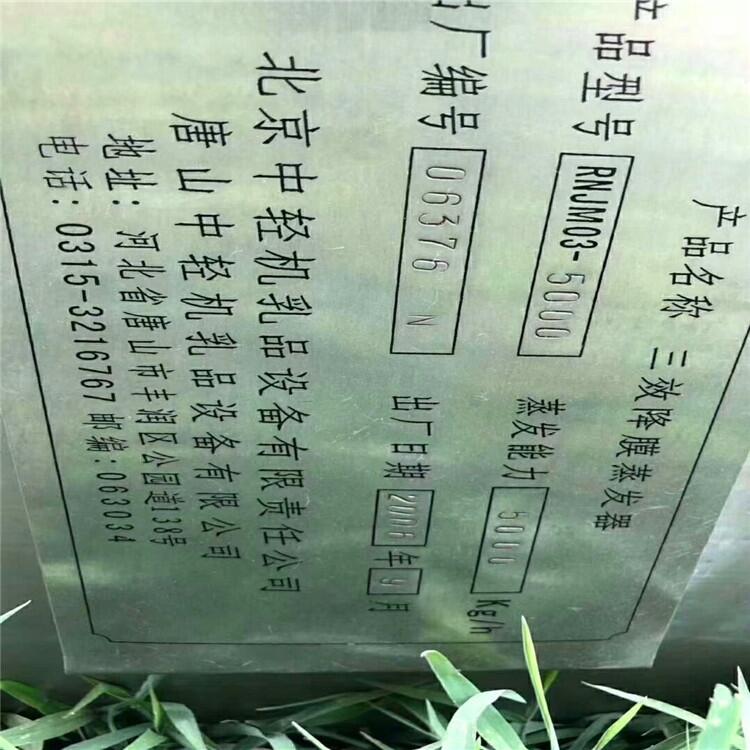 产品名称 三效降膜蒸发器
产品型号 RNJM03-5000 蒸发能力 5000 Kg/h
出厂编号 06376 N 出厂日期 2006 年 9 月
北京中轻机乳品设备有限责任公司
唐山中轻机乳品设备有限公司
地址:河北省唐山市丰润区公园道138号
电话:0315-3216767 邮编:063034